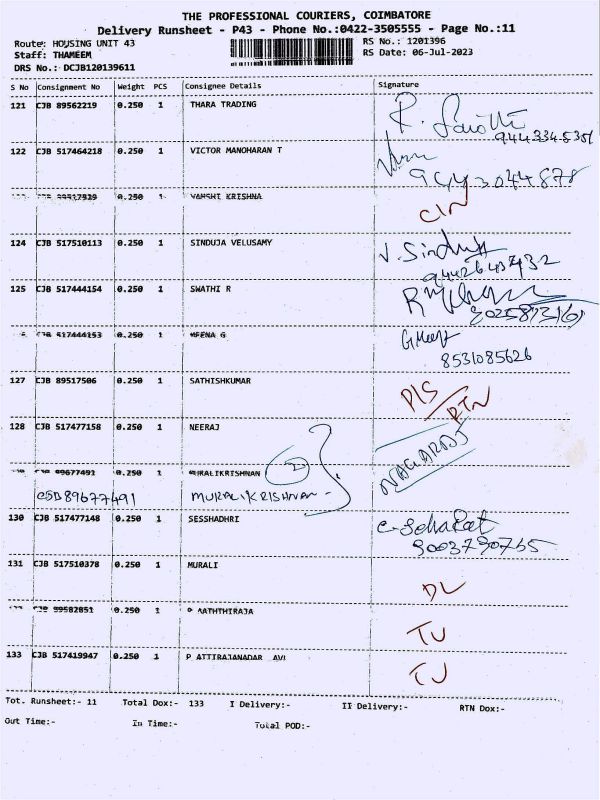 THE PROFESSIONAL COURIERS, COIMBATORE
Delivery Runsheet - P43 - Phone No.:0422-3505555 - Page No.:11
Route: HOUSING UNIT 43
RS No.: 1201396
Staff: THAMEEM
RS Date: 06-Jul-2023
DRS No.: DCJB120139611
S No Consignment No Weight PCS Consignee Details Signature
121 CJB 89562219 0.250 1 THARA TRADING
122 CJB 517464218 0.250 1 VICTOR MANOHARAN T
9443044878
0.250 1 VAMSHI KRISHNA
CIN
124 CJB 517510113 0.250 1 SINDUJA VELUSAMY
V. Sinduja
125 CJB 517444154 0.250 1 SWATHI R
CJB 517444153 0.250 1 MEENA G
G Meena
8531085626
127 CJB 89517506 0.250 1 SATHISHKUMAR
PIS/RTN
128 CJB 517477158 0.250 1 NEERAJ
NAGARAJ
89677491 0.250 1 MURALIKRISHNAN 2
CJB89677491 MURALIKRISHNAN -
130 CJB 517477148 0.250 1 SESSHADHRI
131 CJB 517510378 0.250 1 MURALI
DL
CJB 89582851 0.250 1
TU
133 CJB 517419947 0.250 1
TU
Tot. Runsheet:- 11 Total Dox:- 133 I Delivery:- II Delivery:- RTN Dox:-
Out Time:- In Time:- Total POD:-